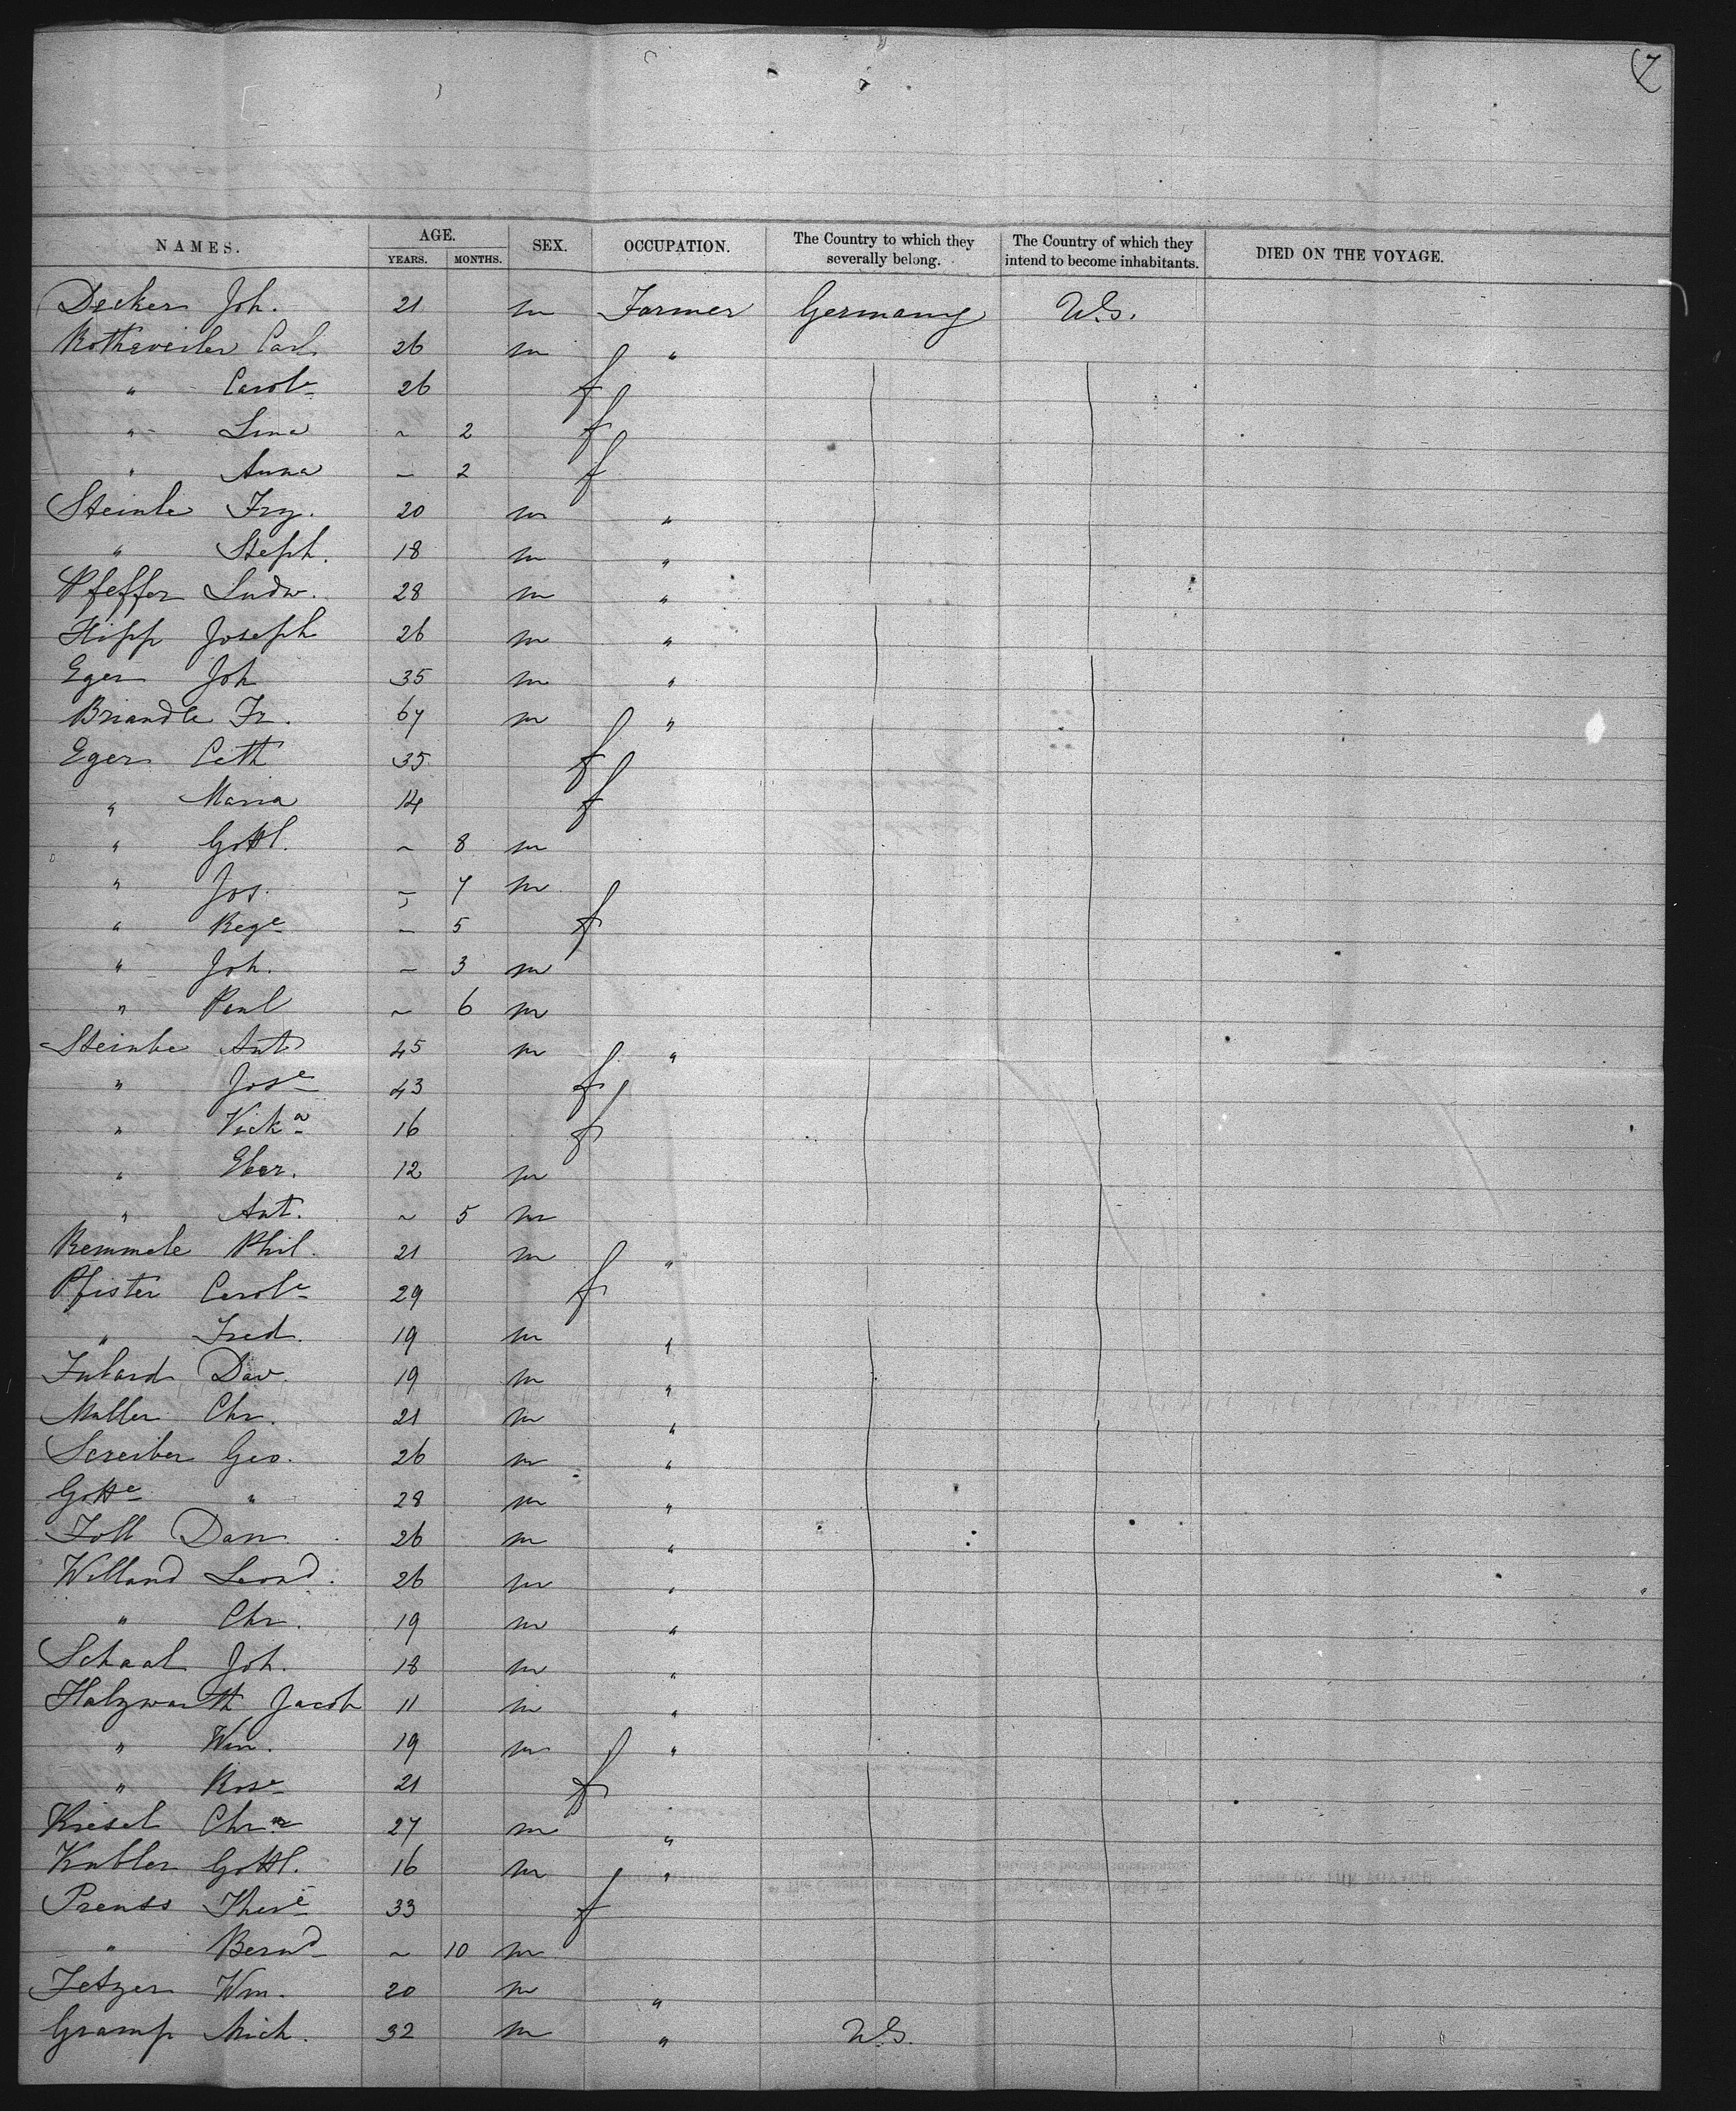 7
NAMES. AGE. YEARS. MONTHS. SEX. OCCUPATION. The Country to which they severally belong. The Country of which they intend to become inhabitants. DIED ON THE VOYAGE.
Decker Joh. 21 m Farmer Germany U.S.
Rothweiler Carl 26 m "
" Carole 26 f
" Lina ~ 2 f
" Anna – 2 f
Steinle Frz. 20 m "
" Steph. 18 m "
Pfeffer Ludw. 28 m "
Hipp Joseph 26 m "
Eger Joh 35 m "
Briandle Fr. 67 m "
Eger Cath 35 f
" Maria 14 f
" Gottl. ~ 8 m
" Jos. – 7 m
" Rege – 5 f
" Joh. – 3 m
" Paul ~ 6 m
Steinle Ant 45 m "
" Jose 43 f
" Vicka 16 f
" Eber. 12 m
" Ant. ~ 5 m
Remmele Phil. 21 m "
Pfister Carole 29 f
" Fred. 19 m "
Dav. 19 m "
Muller Chr. 21 m "
Screiber Geo. 26 m "
Gotte " 28 m "
Foll Dan 26 m "
Willand Leond. 26 m "
" Chr. 19 m "
Schaal Joh. 18 m "
Halzwarth Jacob 11 m "
" Wm. 19 m "
" Rose 21 f
Kiesel Chr 27 m "
Kubler Gottl. 16 m "
Prenss There 33 f
" Bernd ~ 10 m
Fetzer Wm. 20 m "
Gramp Mich. 32 m " U.S.